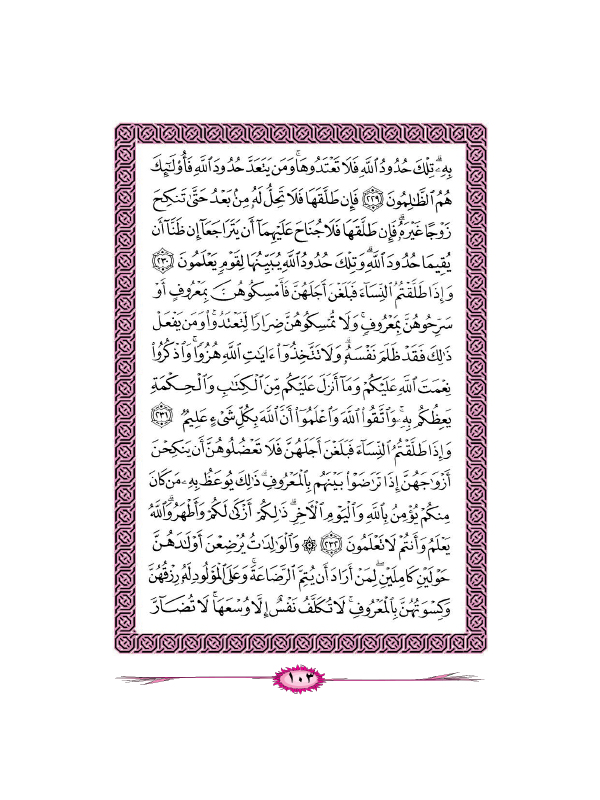 بِهِۦۗ تِلۡكَ حُدُودُ ٱللَّهِ فَلَا تَعۡتَدُوهَاۚ وَمَن يَتَعَدَّ حُدُودَ ٱللَّهِ فَأُوْلَٰٓئِكَ
هُمُ ٱلظَّٰلِمُونَ ﴿٢٢٩﴾ فَإِن طَلَّقَهَا فَلَا تَحِلُّ لَهُۥ مِنۢ بَعۡدُ حَتَّىٰ تَنكِحَ
زَوۡجًا غَيۡرَهُۥۗ فَإِن طَلَّقَهَا فَلَا جُنَاحَ عَلَيۡهِمَآ أَن يَتَرَاجَعَآ إِن ظَنَّآ أَن
يُقِيمَا حُدُودَ ٱللَّهِۗ وَتِلۡكَ حُدُودُ ٱللَّهِ يُبَيِّنُهَا لِقَوۡمٖ يَعۡلَمُونَ ﴿٢٣٠﴾
وَإِذَا طَلَّقۡتُمُ ٱلنِّسَآءَ فَبَلَغۡنَ أَجَلَهُنَّ فَأَمۡسِكُوهُنَّ بِمَعۡرُوفٍ أَوۡ
سَرِّحُوهُنَّ بِمَعۡرُوفٖۚ وَلَا تُمۡسِكُوهُنَّ ضِرَارٗا لِّتَعۡتَدُواْۚ وَمَن يَفۡعَلۡ
ذَٰلِكَ فَقَدۡ ظَلَمَ نَفۡسَهُۥۚ وَلَا تَتَّخِذُوٓاْ ءَايَٰتِ ٱللَّهِ هُزُوٗاۚ وَٱذۡكُرُواْ
نِعۡمَتَ ٱللَّهِ عَلَيۡكُمۡ وَمَآ أَنزَلَ عَلَيۡكُم مِّنَ ٱلۡكِتَٰبِ وَٱلۡحِكۡمَةِ
يَعِظُكُم بِهِۦۚ وَٱتَّقُواْ ٱللَّهَ وَٱعۡلَمُوٓاْ أَنَّ ٱللَّهَ بِكُلِّ شَيۡءٍ عَلِيمٞ ﴿٢٣١﴾
وَإِذَا طَلَّقۡتُمُ ٱلنِّسَآءَ فَبَلَغۡنَ أَجَلَهُنَّ فَلَا تَعۡضُلُوهُنَّ أَن يَنكِحۡنَ
أَزۡوَٰجَهُنَّ إِذَا تَرَٰضَوۡاْ بَيۡنَهُم بِٱلۡمَعۡرُوفِۗ ذَٰلِكَ يُوعَظُ بِهِۦ مَن كَانَ
مِنكُمۡ يُؤۡمِنُ بِٱللَّهِ وَٱلۡيَوۡمِ ٱلۡأٓخِرِۗ ذَٰلِكُمۡ أَزۡكَىٰ لَكُمۡ وَأَطۡهَرُۚ وَٱللَّهُ
يَعۡلَمُ وَأَنتُمۡ لَا تَعۡلَمُونَ ﴿٢٣٢﴾ ۞ وَٱلۡوَٰلِدَٰتُ يُرۡضِعۡنَ أَوۡلَٰدَهُنَّ
حَوۡلَيۡنِ كَامِلَيۡنِۖ لِمَنۡ أَرَادَ أَن يُتِمَّ ٱلرَّضَاعَةَۚ وَعَلَى ٱلۡمَوۡلُودِ لَهُۥ رِزۡقُهُنَّ
وَكِسۡوَتُهُنَّ بِٱلۡمَعۡرُوفِۚ لَا تُكَلَّفُ نَفۡسٌ إِلَّا وُسۡعَهَاۚ لَا تُضَآرَّ
١٠٣